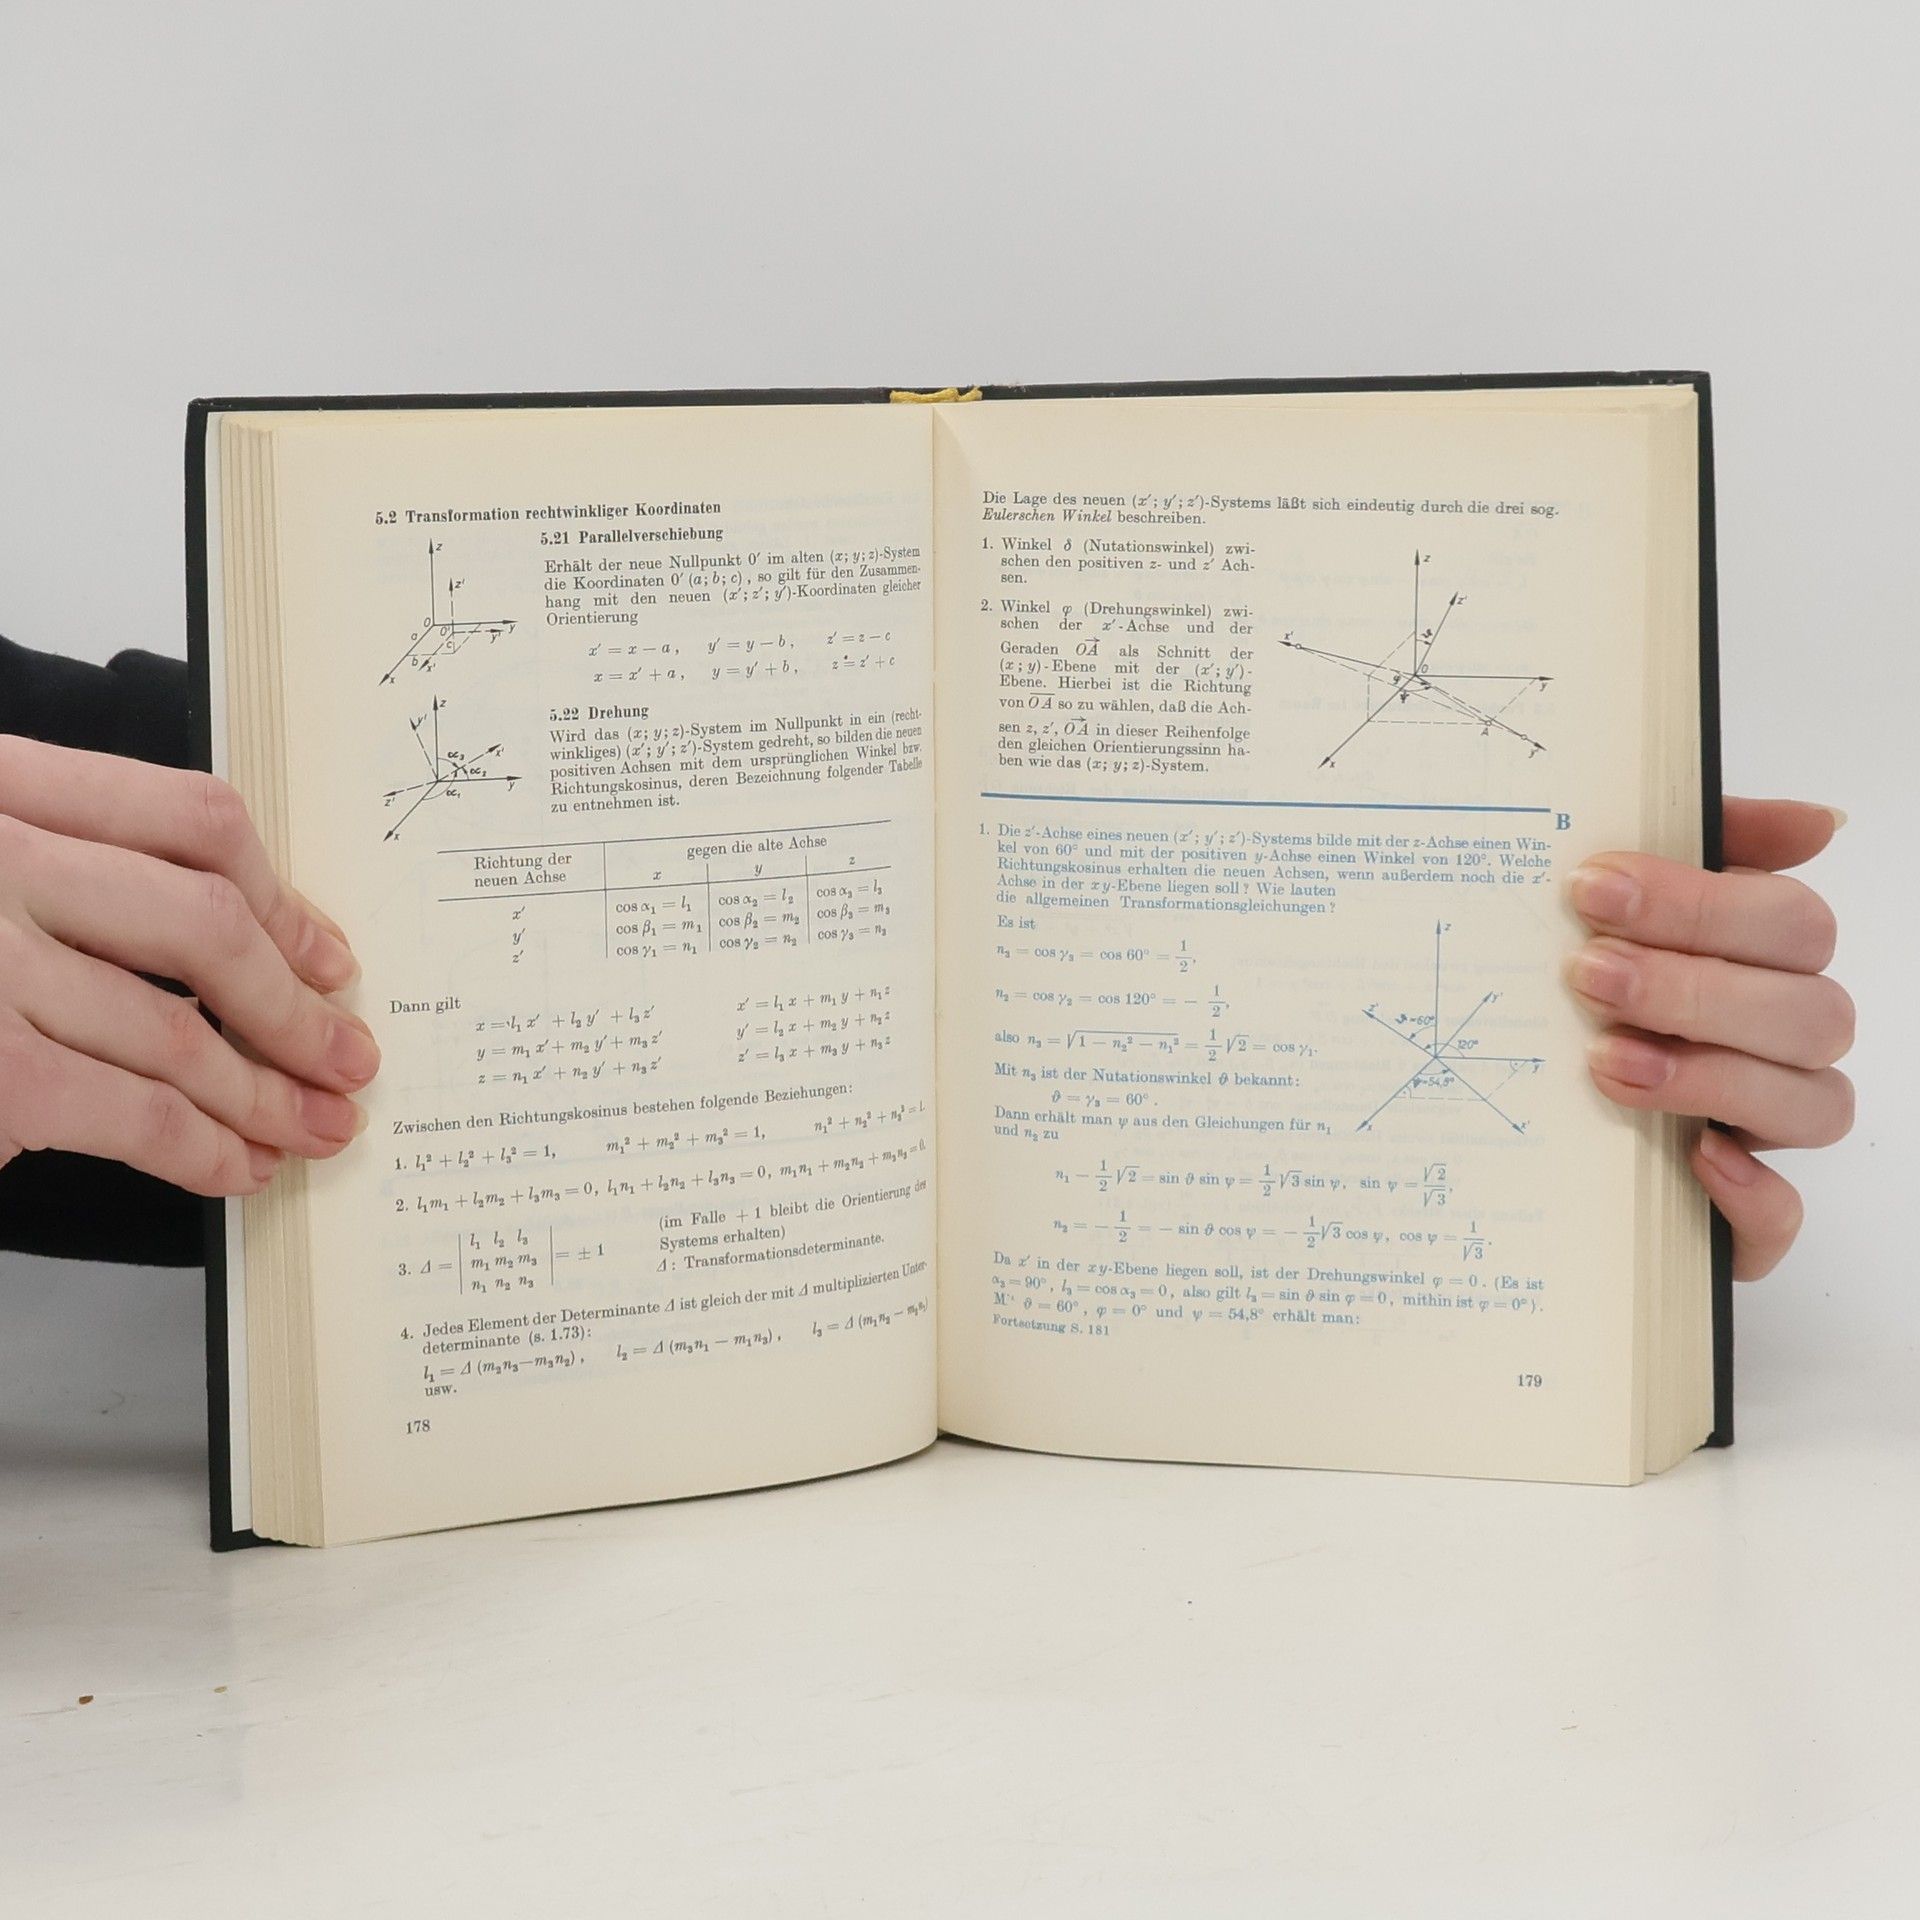 5.2 Transformation rechtwinkliger Koordinaten
5.21 Parallelverschiebung
Erhält der neue Nullpunkt 0′ im alten (x; y; z)-System
die Koordinaten 0′ (a; b; c), so gilt für den Zusammen-
hang mit den neuen (x′; z′; y′)-Koordinaten gleicher
Orientierung
x′ = x − a, y′ = y − b, z′ = z − c
x = x′ + a, y = y′ + b, z = z′ + c
z
z′
0
0′
y
y′
a
b
c
x′
x
5.22 Drehung
Wird das (x; y; z)-System im Nullpunkt in ein (recht-
winkliges) (x′; y′; z′)-System gedreht, so bilden die neuen
positiven Achsen mit dem ursprünglichen Winkel bzw.
Richtungskosinus, deren Bezeichnung folgender Tabelle
zu entnehmen ist.
z
y′
x′
α₃
α₂
α₁
y
z′
x
Richtung der neuen Achse
gegen die alte Achse
x y z
x′ cos α₁ = l₁ cos α₂ = l₂ cos α₃ = l₃
y′ cos β₁ = m₁ cos β₂ = m₂ cos β₃ = m₃
z′ cos γ₁ = n₁ cos γ₂ = n₂ cos γ₃ = n₃
Dann gilt
x = l₁ x′ + l₂ y′ + l₃ z′ x′ = l₁ x + m₁ y + n₁ z
y = m₁ x′ + m₂ y′ + m₃ z′ y′ = l₂ x + m₂ y + n₂ z
z = n₁ x′ + n₂ y′ + n₃ z′ z′ = l₃ x + m₃ y + n₃ z
Zwischen den Richtungskosinus bestehen folgende Beziehungen:
1. l₁² + l₂² + l₃² = 1, m₁² + m₂² + m₃² = 1, n₁² + n₂² + n₃² = 1.
2. l₁m₁ + l₂m₂ + l₃m₃ = 0, l₁n₁ + l₂n₂ + l₃n₃ = 0, m₁n₁ + m₂n₂ + m₃n₃ = 0.
3. Δ = | l₁ l₂ l₃
m₁ m₂ m₃
n₁ n₂ n₃ | = ± 1
(im Falle + 1 bleibt die Orientierung des
Systems erhalten)
Δ: Transformationsdeterminante.
4. Jedes Element der Determinante Δ ist gleich der mit Δ multiplizierten Unter-
determinante (s. 1.73):
l₁ = Δ (m₂n₃ − m₃n₂), l₂ = Δ (m₃n₁ − m₁n₃), l₃ = Δ (m₁n₂ − m₂n₁)
usw.
178
Die Lage des neuen (x′; y′; z′)-Systems läßt sich eindeutig durch die drei sog.
Eulerschen Winkel beschreiben.
1. Winkel δ (Nutationswinkel) zwi-
schen den positiven z- und z′ Ach-
sen.
2. Winkel φ (Drehungswinkel) zwi-
schen der x′-Achse und der
Geraden OA als Schnitt der
(x; y)-Ebene mit der (x′; y′)-
Ebene. Hierbei ist die Richtung
von OA so zu wählen, daß die Ach-
sen z, z′, OA in dieser Reihenfolge
den gleichen Orientierungssinn ha-
ben wie das (x; y; z)-System.
z
z′
x′
ϑ
0
φ
ψ
y
A
y′
x
B
1. Die z′-Achse eines neuen (x′; y′; z′)-Systems bilde mit der z-Achse einen Win-
kel von 60° und mit der positiven y-Achse einen Winkel von 120°. Welche
Richtungskosinus erhalten die neuen Achsen, wenn außerdem noch die x′-
Achse in der xy-Ebene liegen soll? Wie lauten
die allgemeinen Transformationsgleichungen?
Es ist
n₃ = cos γ₃ = cos 60° = 1/2,
n₂ = cos γ₂ = cos 120° = − 1/2,
also n₃ = √(1 − n₂² − n₁²) = 1/2 √2 = cos γ₁.
Mit n₃ ist der Nutationswinkel ϑ bekannt:
ϑ = γ₃ = 60°.
Dann erhält man ψ aus den Gleichungen für n₁
und n₂ zu
z
z′
y′
ϑ=60°
120°
y
ψ=54,8°
x
x′
n₁ − 1/2 √2 = sin ϑ sin ψ = 1/2 √3 sin ψ, sin ψ = √2/√3,
n₂ = − 1/2 = − sin ϑ cos ψ = − 1/2 √3 cos ψ, cos ψ = 1/√3.
Da x′ in der xy-Ebene liegen soll, ist der Drehungswinkel φ = 0. (Es ist
α₃ = 90°, l₃ = cos α₃ = 0, also gilt l₃ = sin ϑ sin φ = 0, mithin ist φ = 0°).
Mit ϑ = 60°, φ = 0° und ψ = 54,8° erhält man:
Fortsetzung S. 181
179